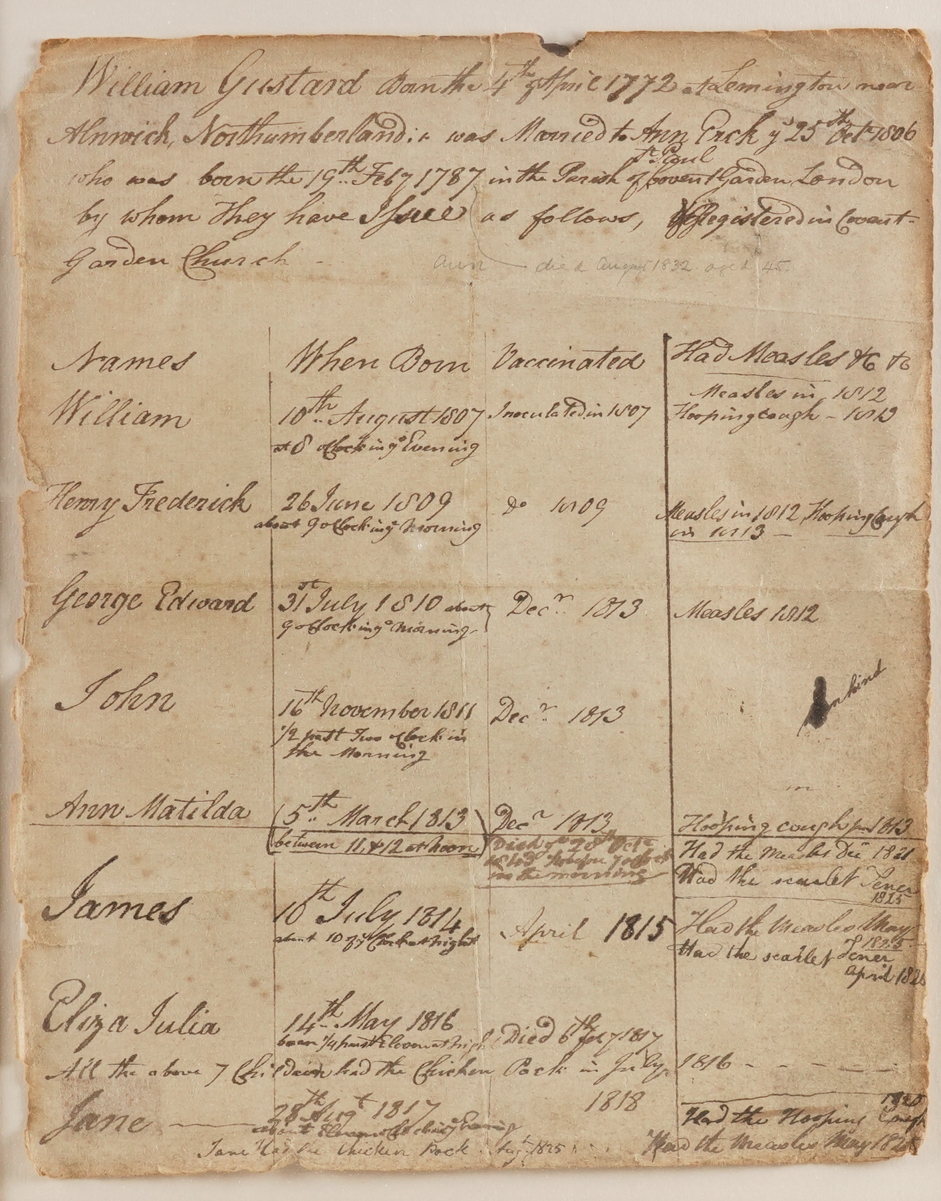 William Gustard Born the 4th of April 1772 at Lemington near
Alnwick, Northumberland: & was Married to Ann Erck ye 25th Octr 1806
St. Paul
who was born the 19th Feby 1787 in the Parish of Covent Garden London
by whom They have Issue as follows, Registered in Covent-
Garden Church -
Ann — died August 1832 aged 45.
Names When Born Vaccinated Had Measles &c &c
William 10th August 1807 Inoculated in 1807 Measles in 1812
at 8 oClock in ye Evening Hooping cough - 1813
Henry Frederick 26 June 1809 do 1809 Measles in 1812 Hooping Cough
about 9 oClock in ye Morning in 1813 -
George Edward 31st July 1810 about Decr. 1813 Measles 1812
9 oClock in ye Morning
John 16th November 1811 Decr. 1813
1/2 past Two oClock in
the Morning
Ann Matilda 5th March 1813 Decr 1813 Hooping cough in 1813
between 11 & 12 at noon Died ye 28th Octr Had the Measles Dec 1821
in the morning Had the scarlet Fever
1825
James 10th July 1814 April 1815 Had the Measles May
about 10 of ye Clock at night 1825
Had the scarlet Fever
April 182
Eliza Julia 14th May 1816 Died 6th July 1817
born 1/4 past Eleven at nigh
All the above 7 Children had the Chicken Pock in July 1816 - - - -
Jane — 28th Augt 1817 1818 Had the Hooping Cough
1820
about Eleven oClock in ye Evening
Jane Had the Chicken Pock Augt 1825 Had the Measles May 182